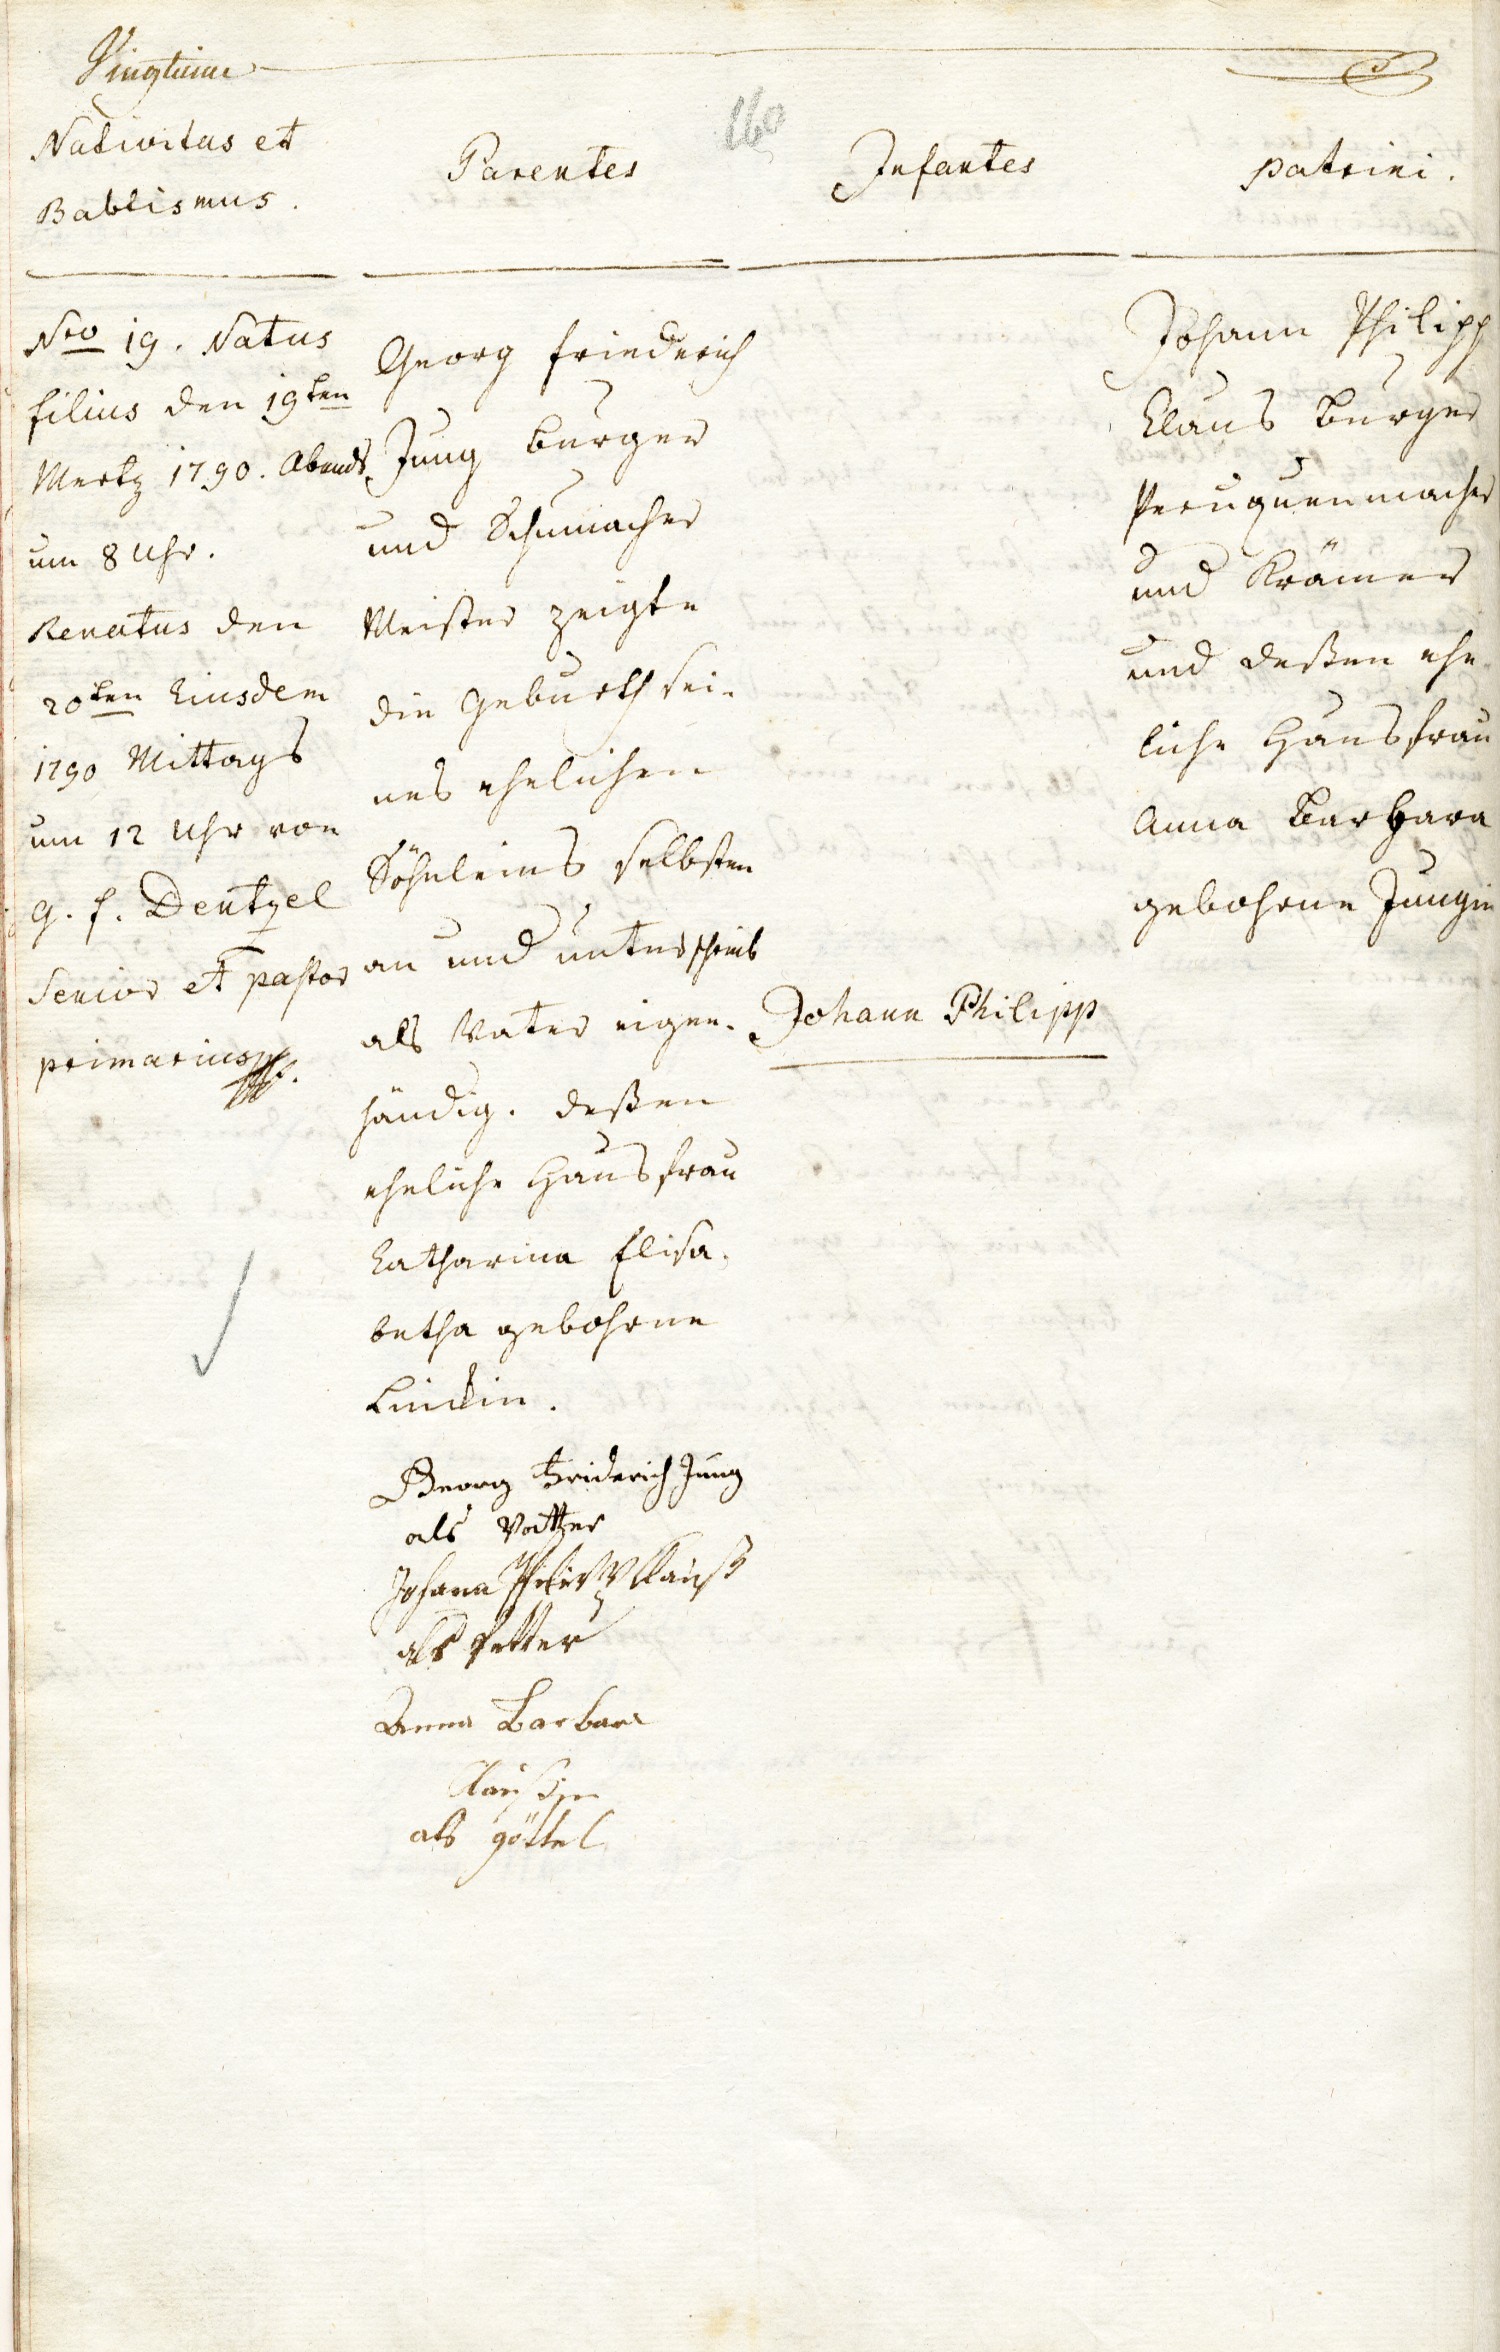 Vingtieme
160
Nativitas et
Babtismus.
Parentes
Infantes
patrini.
Nro 19. Natus
filius den 19ten
Mertz 1790. Abends
um 8 Uhr.
Renatus den
20ten Eiusdem
1790 Mittags
um 12 Uhr von
G. f. Dentzel
Senior et pastor
primarius
Georg Friederich
Jung burger
und Schumacher
Meister zeigte
die Geburth sei-
nes ehelichen
Söhnleins selbsten
an und unterschrieb
als Vater eigen-
händig. deßen
eheliche Hausfrau
Catharina Elisa-
betha gebohrne
Linckin.
Georg Friderich Jung
als Vatter
Johann Philipp Klauß
als Petter
Anna Barbara
Klaußin
als göttel
Johann Philipp
Johann Philipp
Claus burger
Peruquenmacher
und Krämer
und deßen ehe
liche Hausfrau
Anna Barbara
gebohrne Jungin